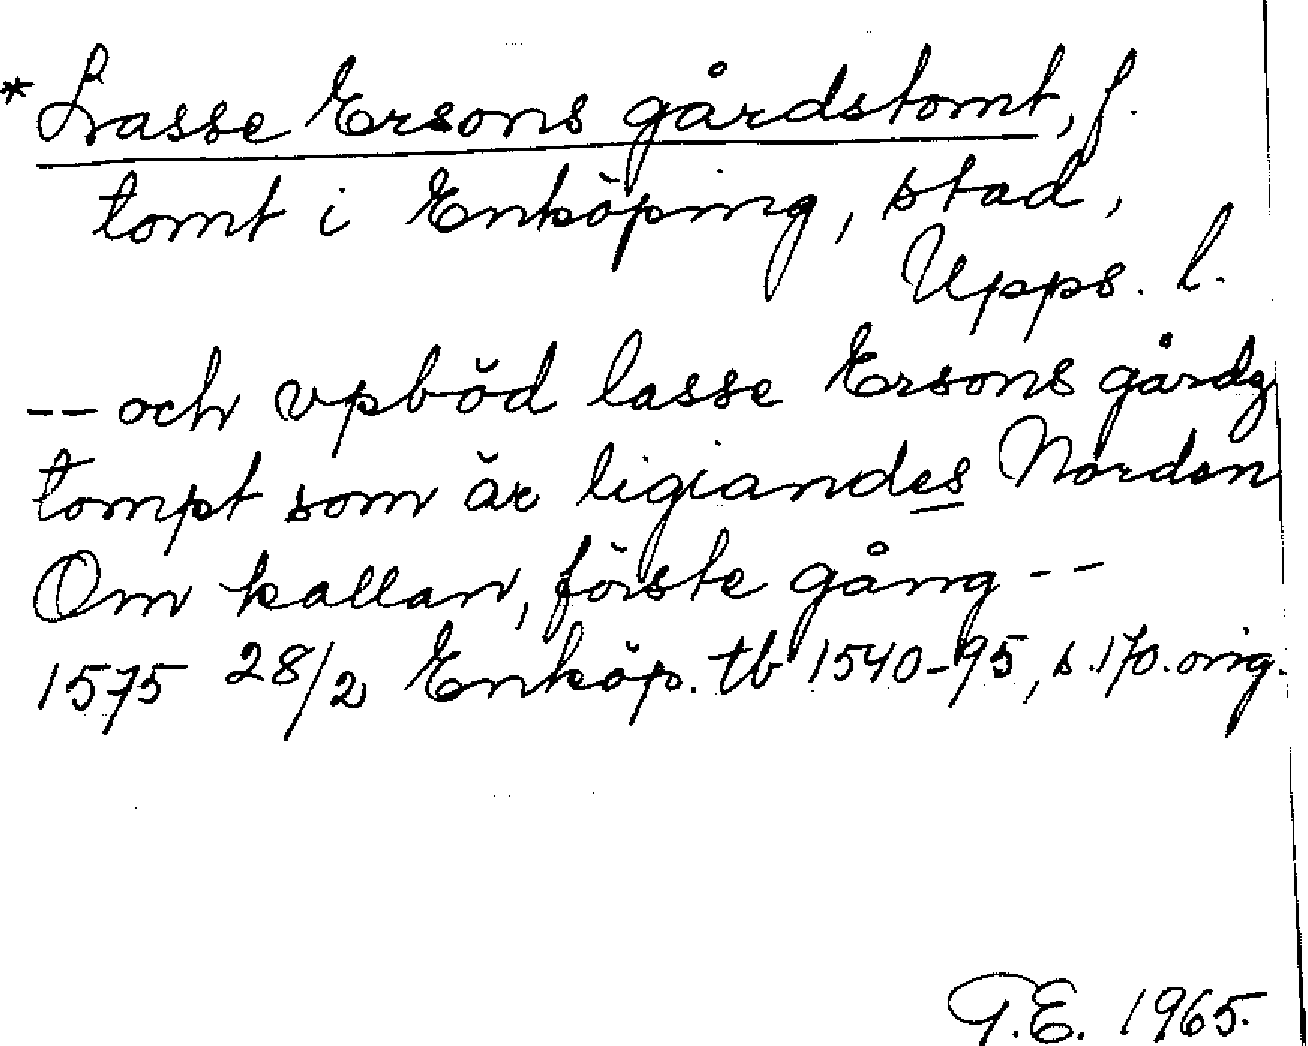 *Lasse Ersons gårdstomt, f.
tomt i Enköping, stad,
Upps. l.
-- och vpböd lasse Ersons gårdz
tompt som är ligiandes Norden
Om kallan, förste gång --
1575 28/2 Enköp. tb 1540-95, s.170. orig.
G.E. 1965.